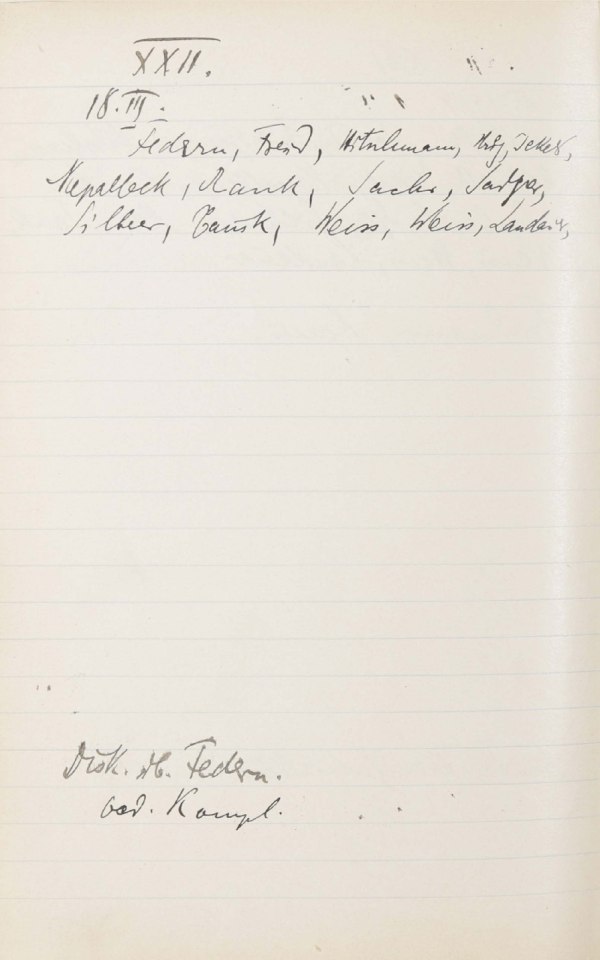 XXII.
18. III.
Federn, Freud, Hitschmann, Hug, Jekels,
Nepalleck, Rank, Sachs, Sadger,
Silberer, Tausk, Weiss, Weiss, Landauer,
Disk. üb. Federn.
Kompl.